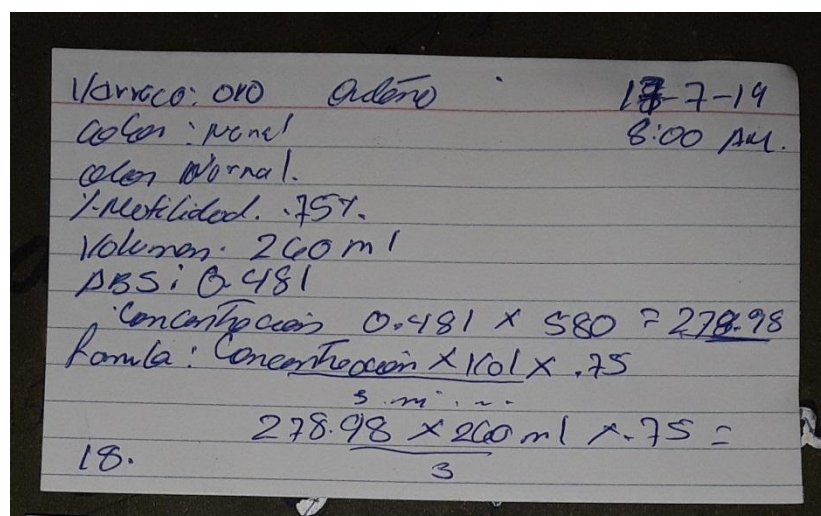 Varraco: ORO 17-7-19
Color: Normal 8:00 AM.
olor Normal.
%Motilidad. .75%.
Volumen. 260 ml
ABS: 0.481
Concentración 0.481 x 580 = 278.98
Formula: Concentración x Vol x .75
3 mi...
278.98 x 260 ml x .75 =
3
18.